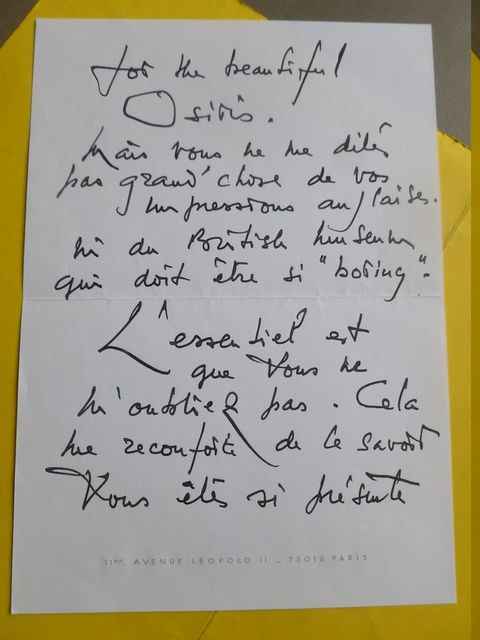 for the beautiful
Osiris.
Mais vous ne me dites
pas grand'chose de vos
impressions anglaises.
ni du British Museum
qui doit être si "boring".
L'essentiel est
que vous ne
m'oubliez pas. Cela
me reconforte de le savoir
Vous êtes si présente
11BIS, AVENUE LÉOPOLD II _ 75016 PARIS